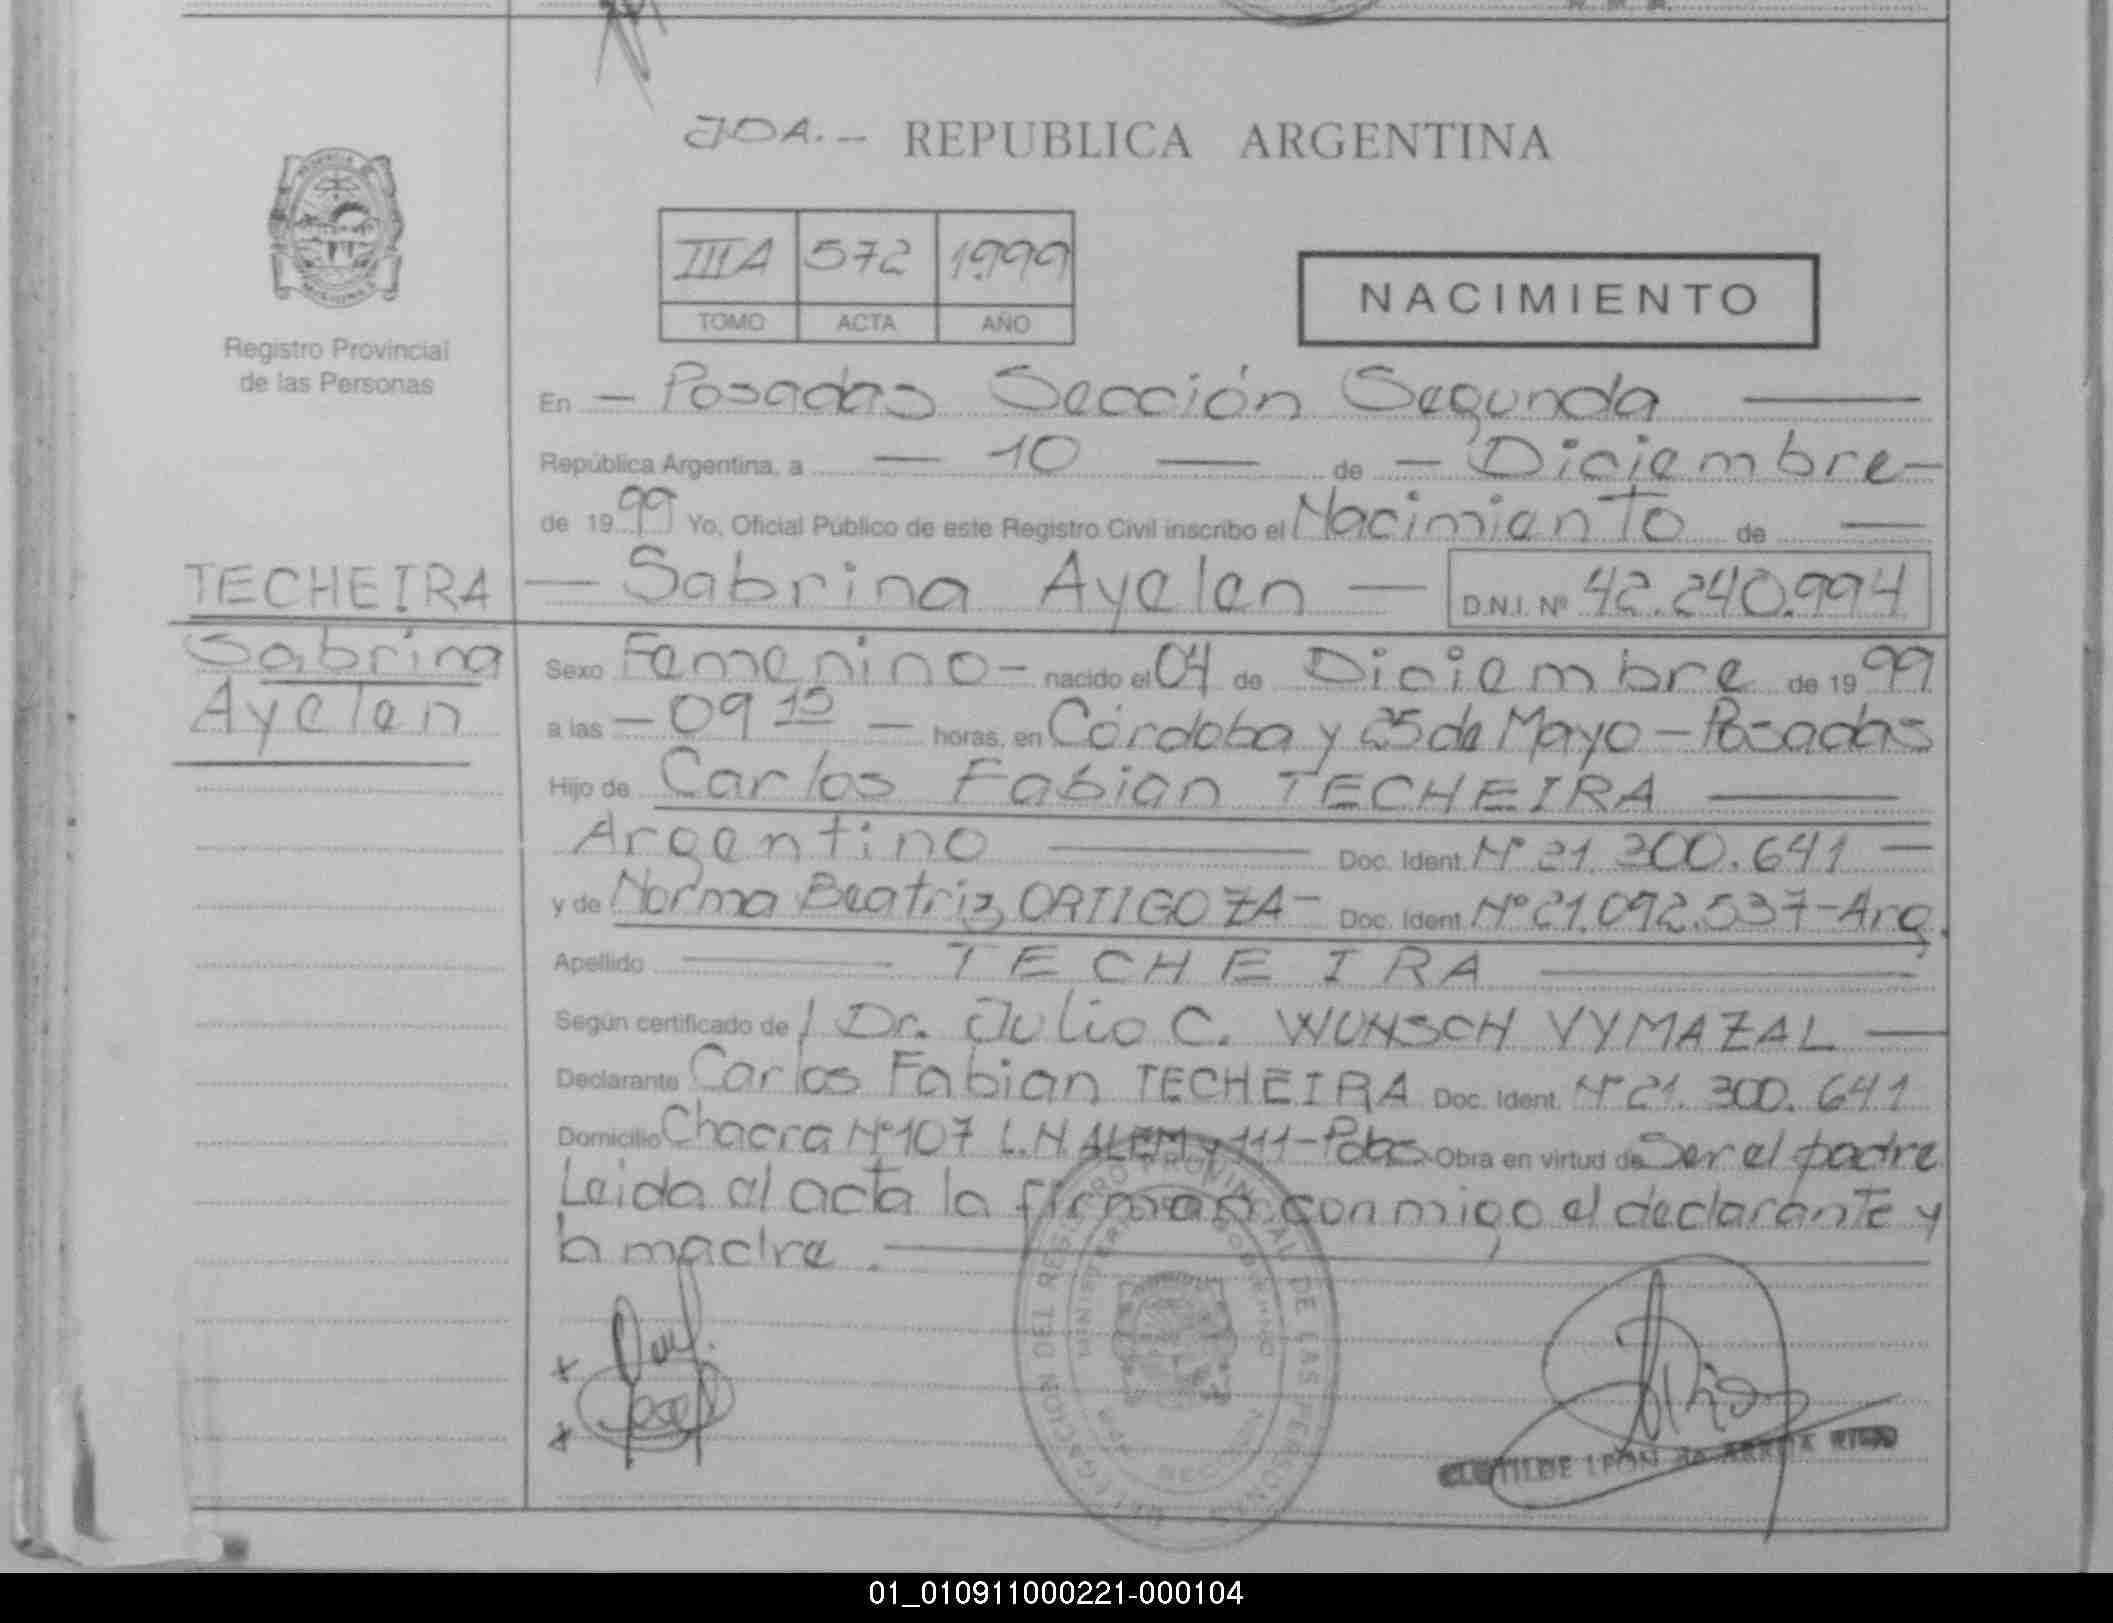 JDA.- REPUBLICA ARGENTINA
III A 572 1999
TOMO ACTA AÑO
NACIMIENTO
Registro Provincial
de las Personas
En - Posadas Sección Segunda
República Argentina, a - 10 - de - Diciembre -
de 1999 Yo, Oficial Público de este Registro Civil inscribo el Nacimiento de
TECHEIRA - Sabrina Ayelen - D.N.I. Nº 42.240.994
Sabrina
Ayelen
Sexo Femenino - nacido el 04 de Diciembre de 1999
a las - 09 15 - horas, en Córdoba y 25 de Mayo - Posadas
Hijo de Carlos Fabian TECHEIRA
Argentino Doc. Ident. Nº 21.300.641
y de Norma Beatriz ORTIGOZA - Doc. Ident. Nº 21.092.537 - Arg.
Apellido TECHEIRA
Según certificado de Dr. Julio C. WUNSCH VYMAZAL
Declarante Carlos Fabian TECHEIRA Doc. Ident. Nº 21.300.641
Domicilio Chacra Nº 107 L.N. ALEM y 111 - Pdas Obra en virtud de Ser el padre
Leida el acta la firman conmigo el declarante y
la madre.
DELEGACION DEL REGISTRO PROVINCIAL DE LAS PERSONAS
CLOTILDE
01_010911000221-000104